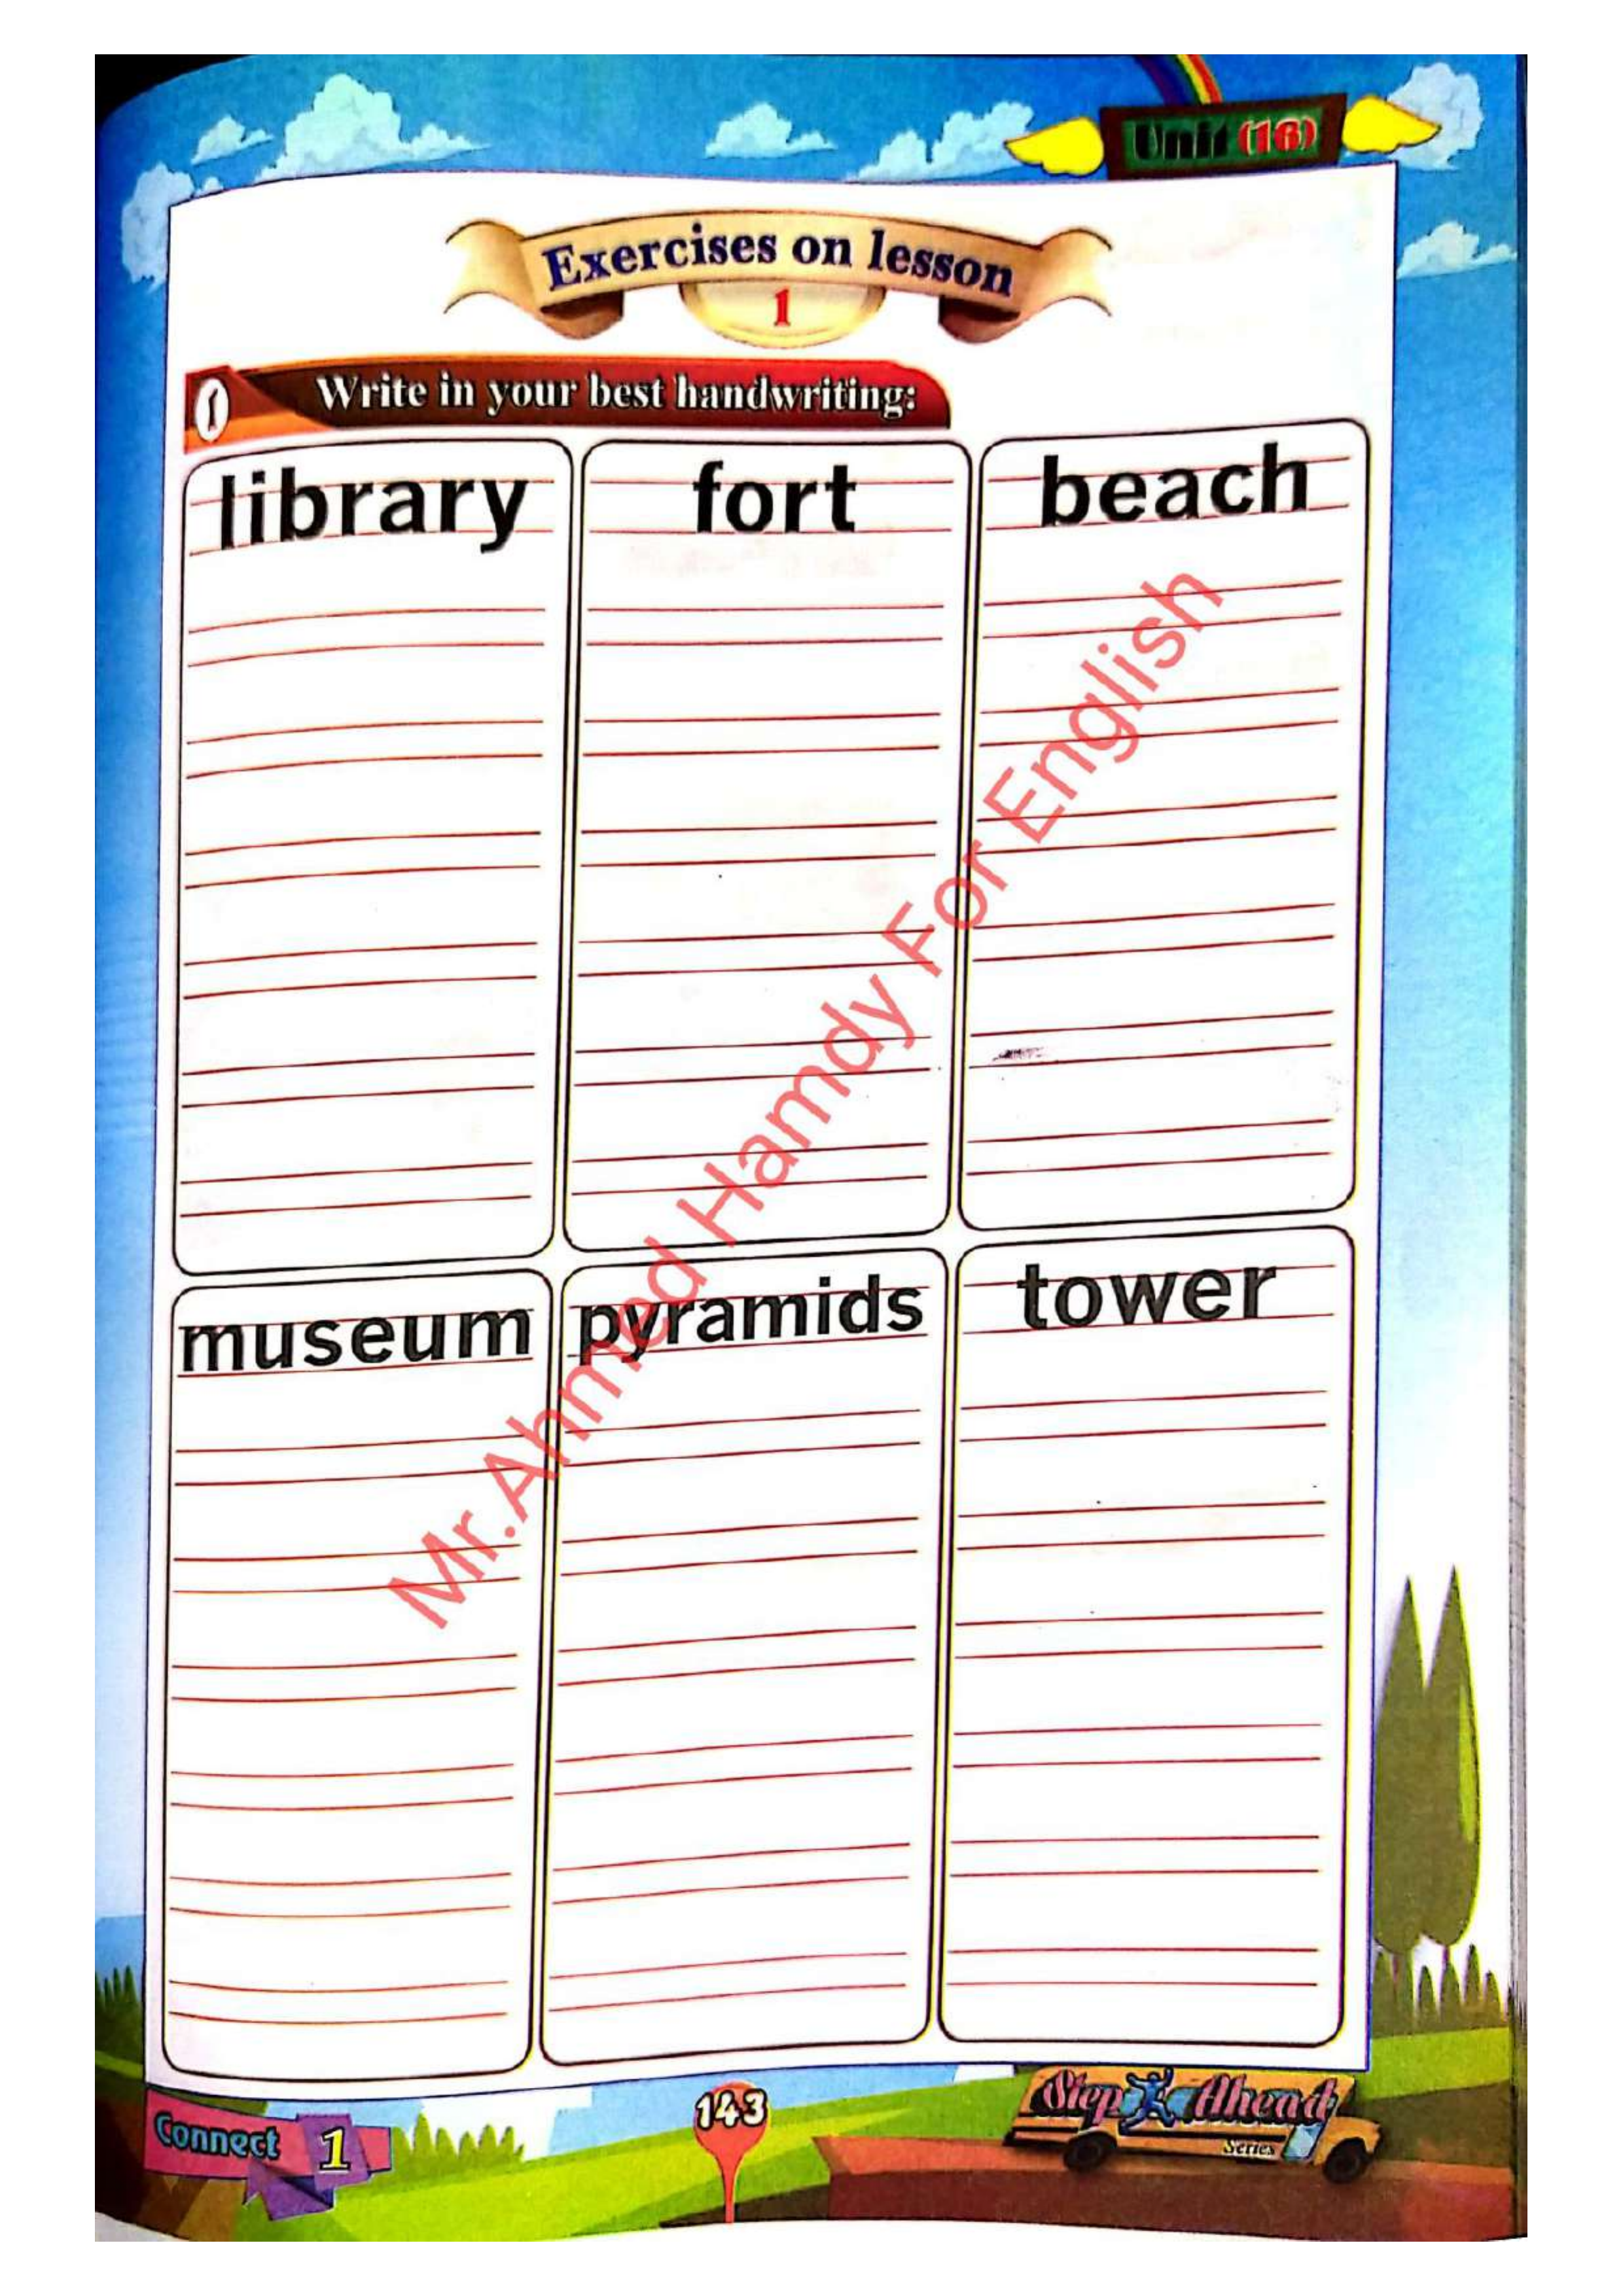 Unit (16)
Exercises on lesson
1
1 Write in your best handwriting:
library fort beach
museum pyramids tower
Mr.Ahmed Hamdy For English
Connect 1
143
Step Ahead
Series